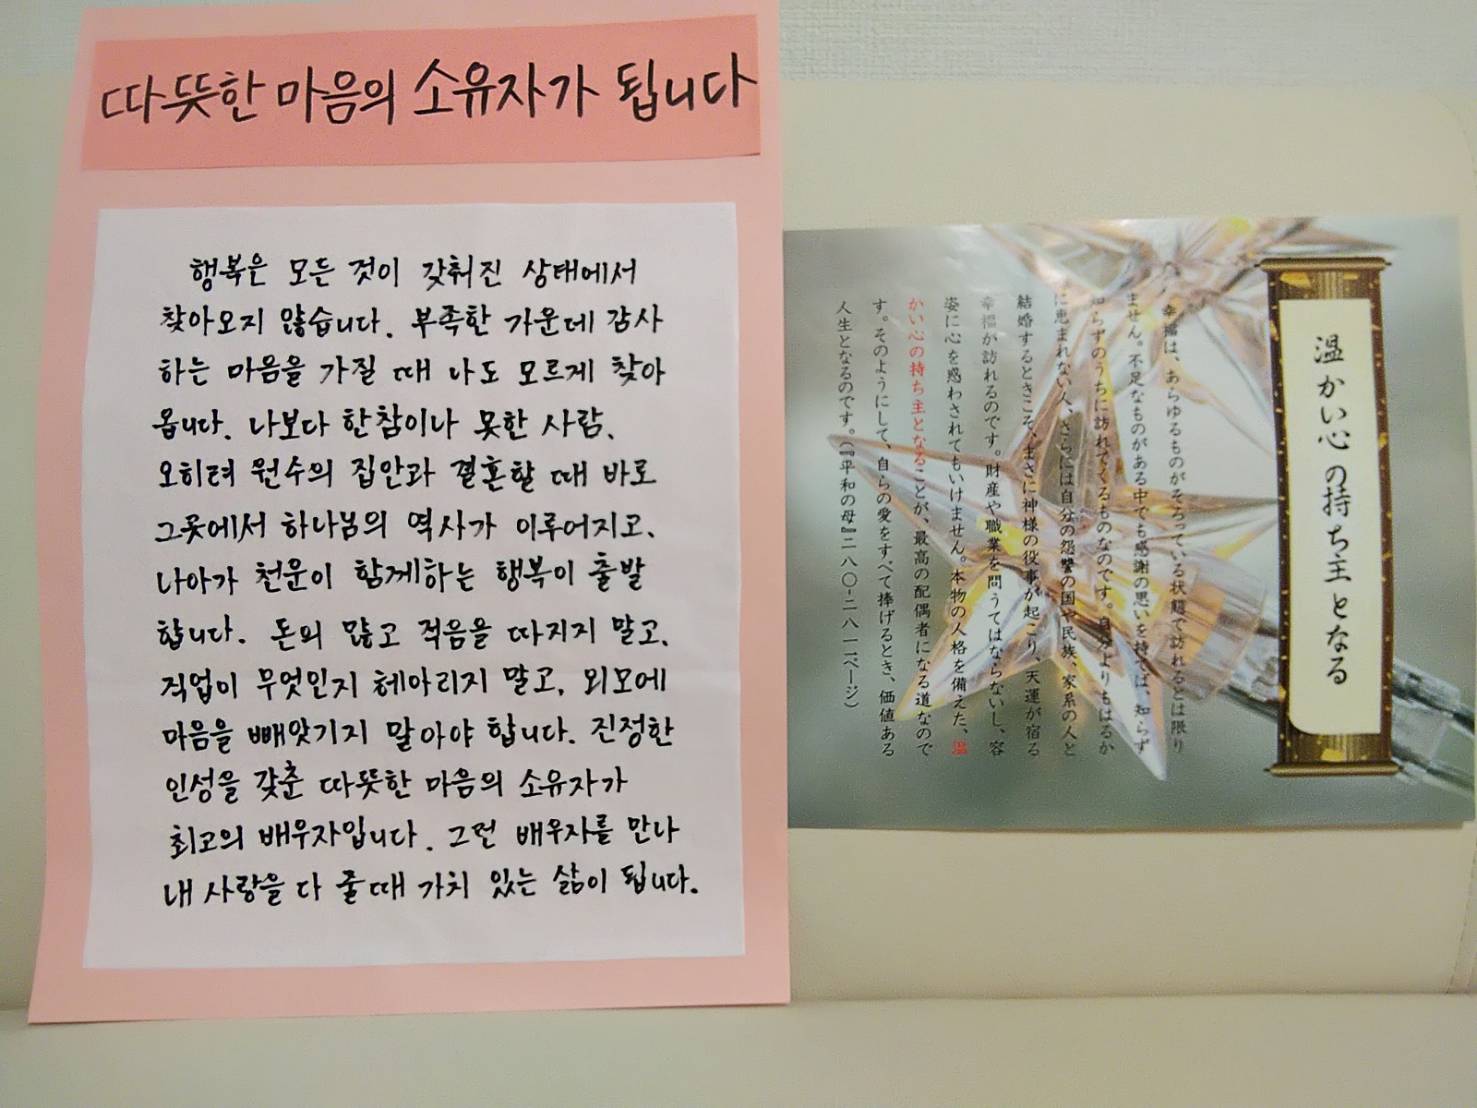 따뜻한 마음의 소유자가 됩니다
행복은 모든 것이 갖춰진 상태에서
찾아오지 않습니다. 부족한 가운데 감사
하는 마음을 가질 때 나도 모르게 찾아
옵니다. 나보다 한참이나 못한 사람,
오히려 원수의 집안과 결혼할 때 바로
그곳에서 하나님의 역사가 이루어지고,
나아가 천운이 함께하는 행복이 출발
합니다. 돈의 많고 적음을 따지지 말고,
직업이 무엇인지 헤아리지 말고, 외모에
마음을 빼앗기지 말아야 합니다. 진정한
인성을 갖춘 따뜻한 마음의 소유자가
최고의 배우자입니다. 그런 배우자를 만나
내 사랑을 다 줄 때 가치 있는 삶이 됩니다.
温かい心の持ち主となる
幸福は、あらゆるものがそろっている状態で訪れるとは限り
ません。不足なものがある中でも感謝の思いを持てば、知らず
知らずのうちに訪れてくるものなのです。自分よりもはるか
に恵まれない人、さらには自分の怨讐の国や民族、家系の人と
結婚するときこそ、まさに神様の役事が起こり、天運が宿る
幸福が訪れるのです。財産や職業を問うてはならないし、容
姿に心を惑わされてもいけません。本物の人格を備えた、温
かい心の持ち主となることが、最高の配偶者になる道なので
す。そのようにして、自らの愛をすべて捧げるとき、価値ある
人生となるのです。(『平和の母』二八〇-二八一ページ)